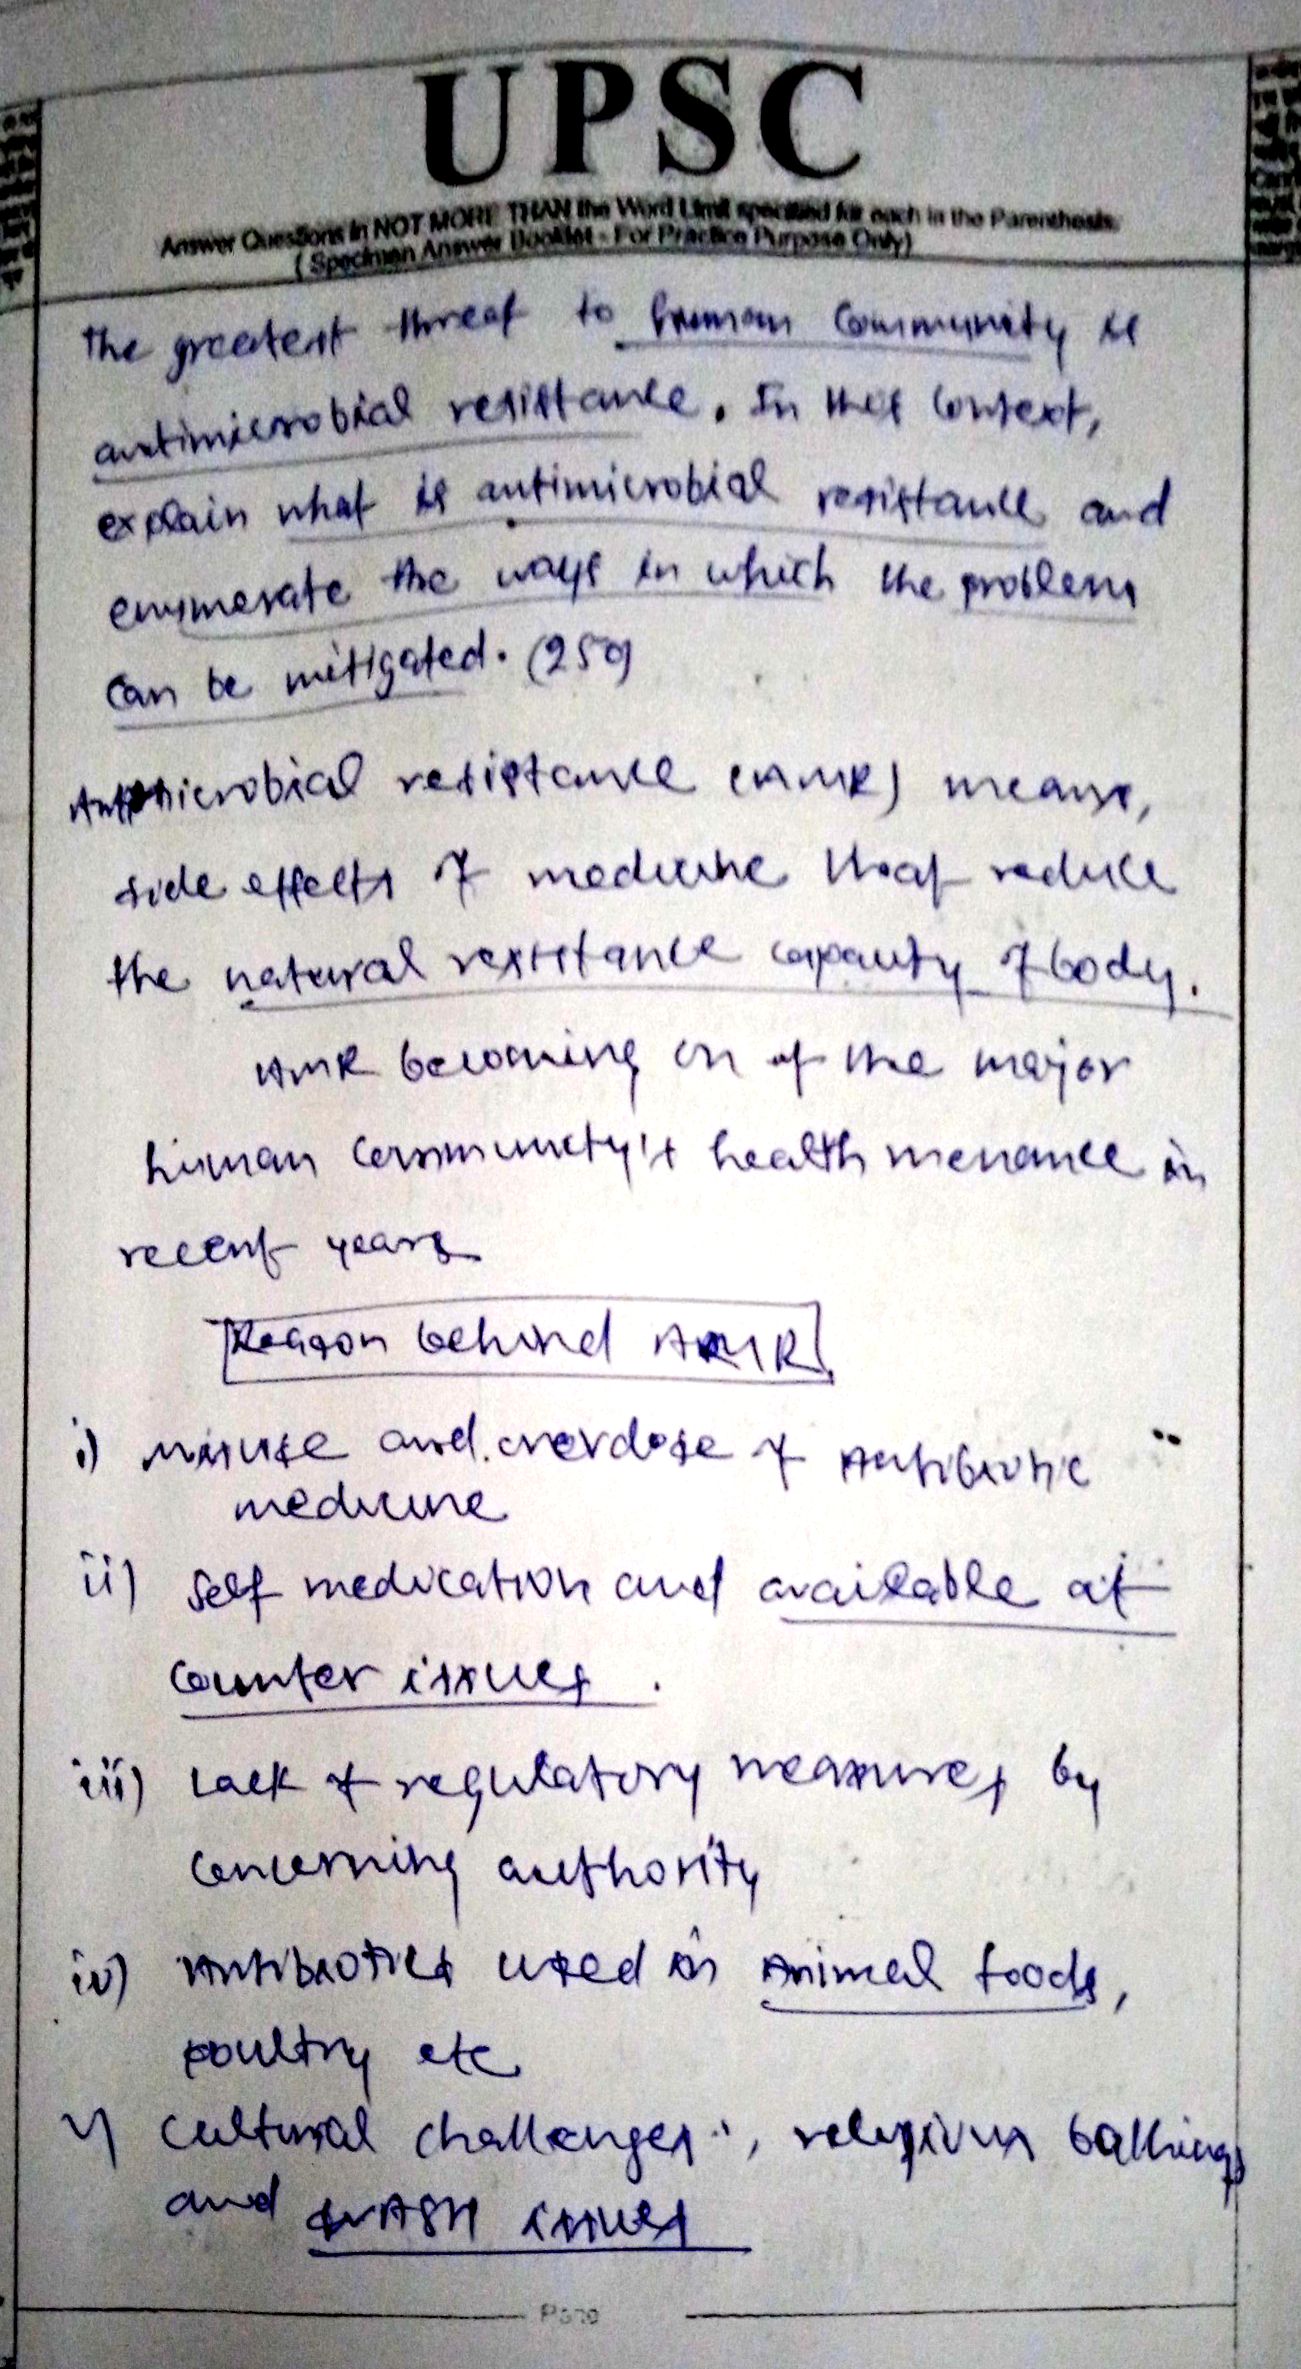 UPSC
Answer Questions in NOT MORE THAN the Word Limit specified for each in the Parenthesis.
( Specimen Answer Booklet - For Practice Purpose Only)
The greatest threat to human community is
antimicrobial resistance. In this context,
explain what is antimicrobial resistance and
enumerate the ways in which the problem
can be mitigated. (250)
Antimicrobial resistance (AMR) means,
side effects of medicine that reduce
the natural resistance capacity of body.
AMR becoming on of the major
human community's health menance in
recent years
Reason behind AMR
i) Misuse and overdose of Antibiotic
medicine
ii) Self medication and available at
counter issues.
iii) Lack of regulatory measures by
concerning authority
iv) Antibiotics used in Animal foods,
poultry etc
v) Cultural challenges, religious bathings
and WASH issues
Page